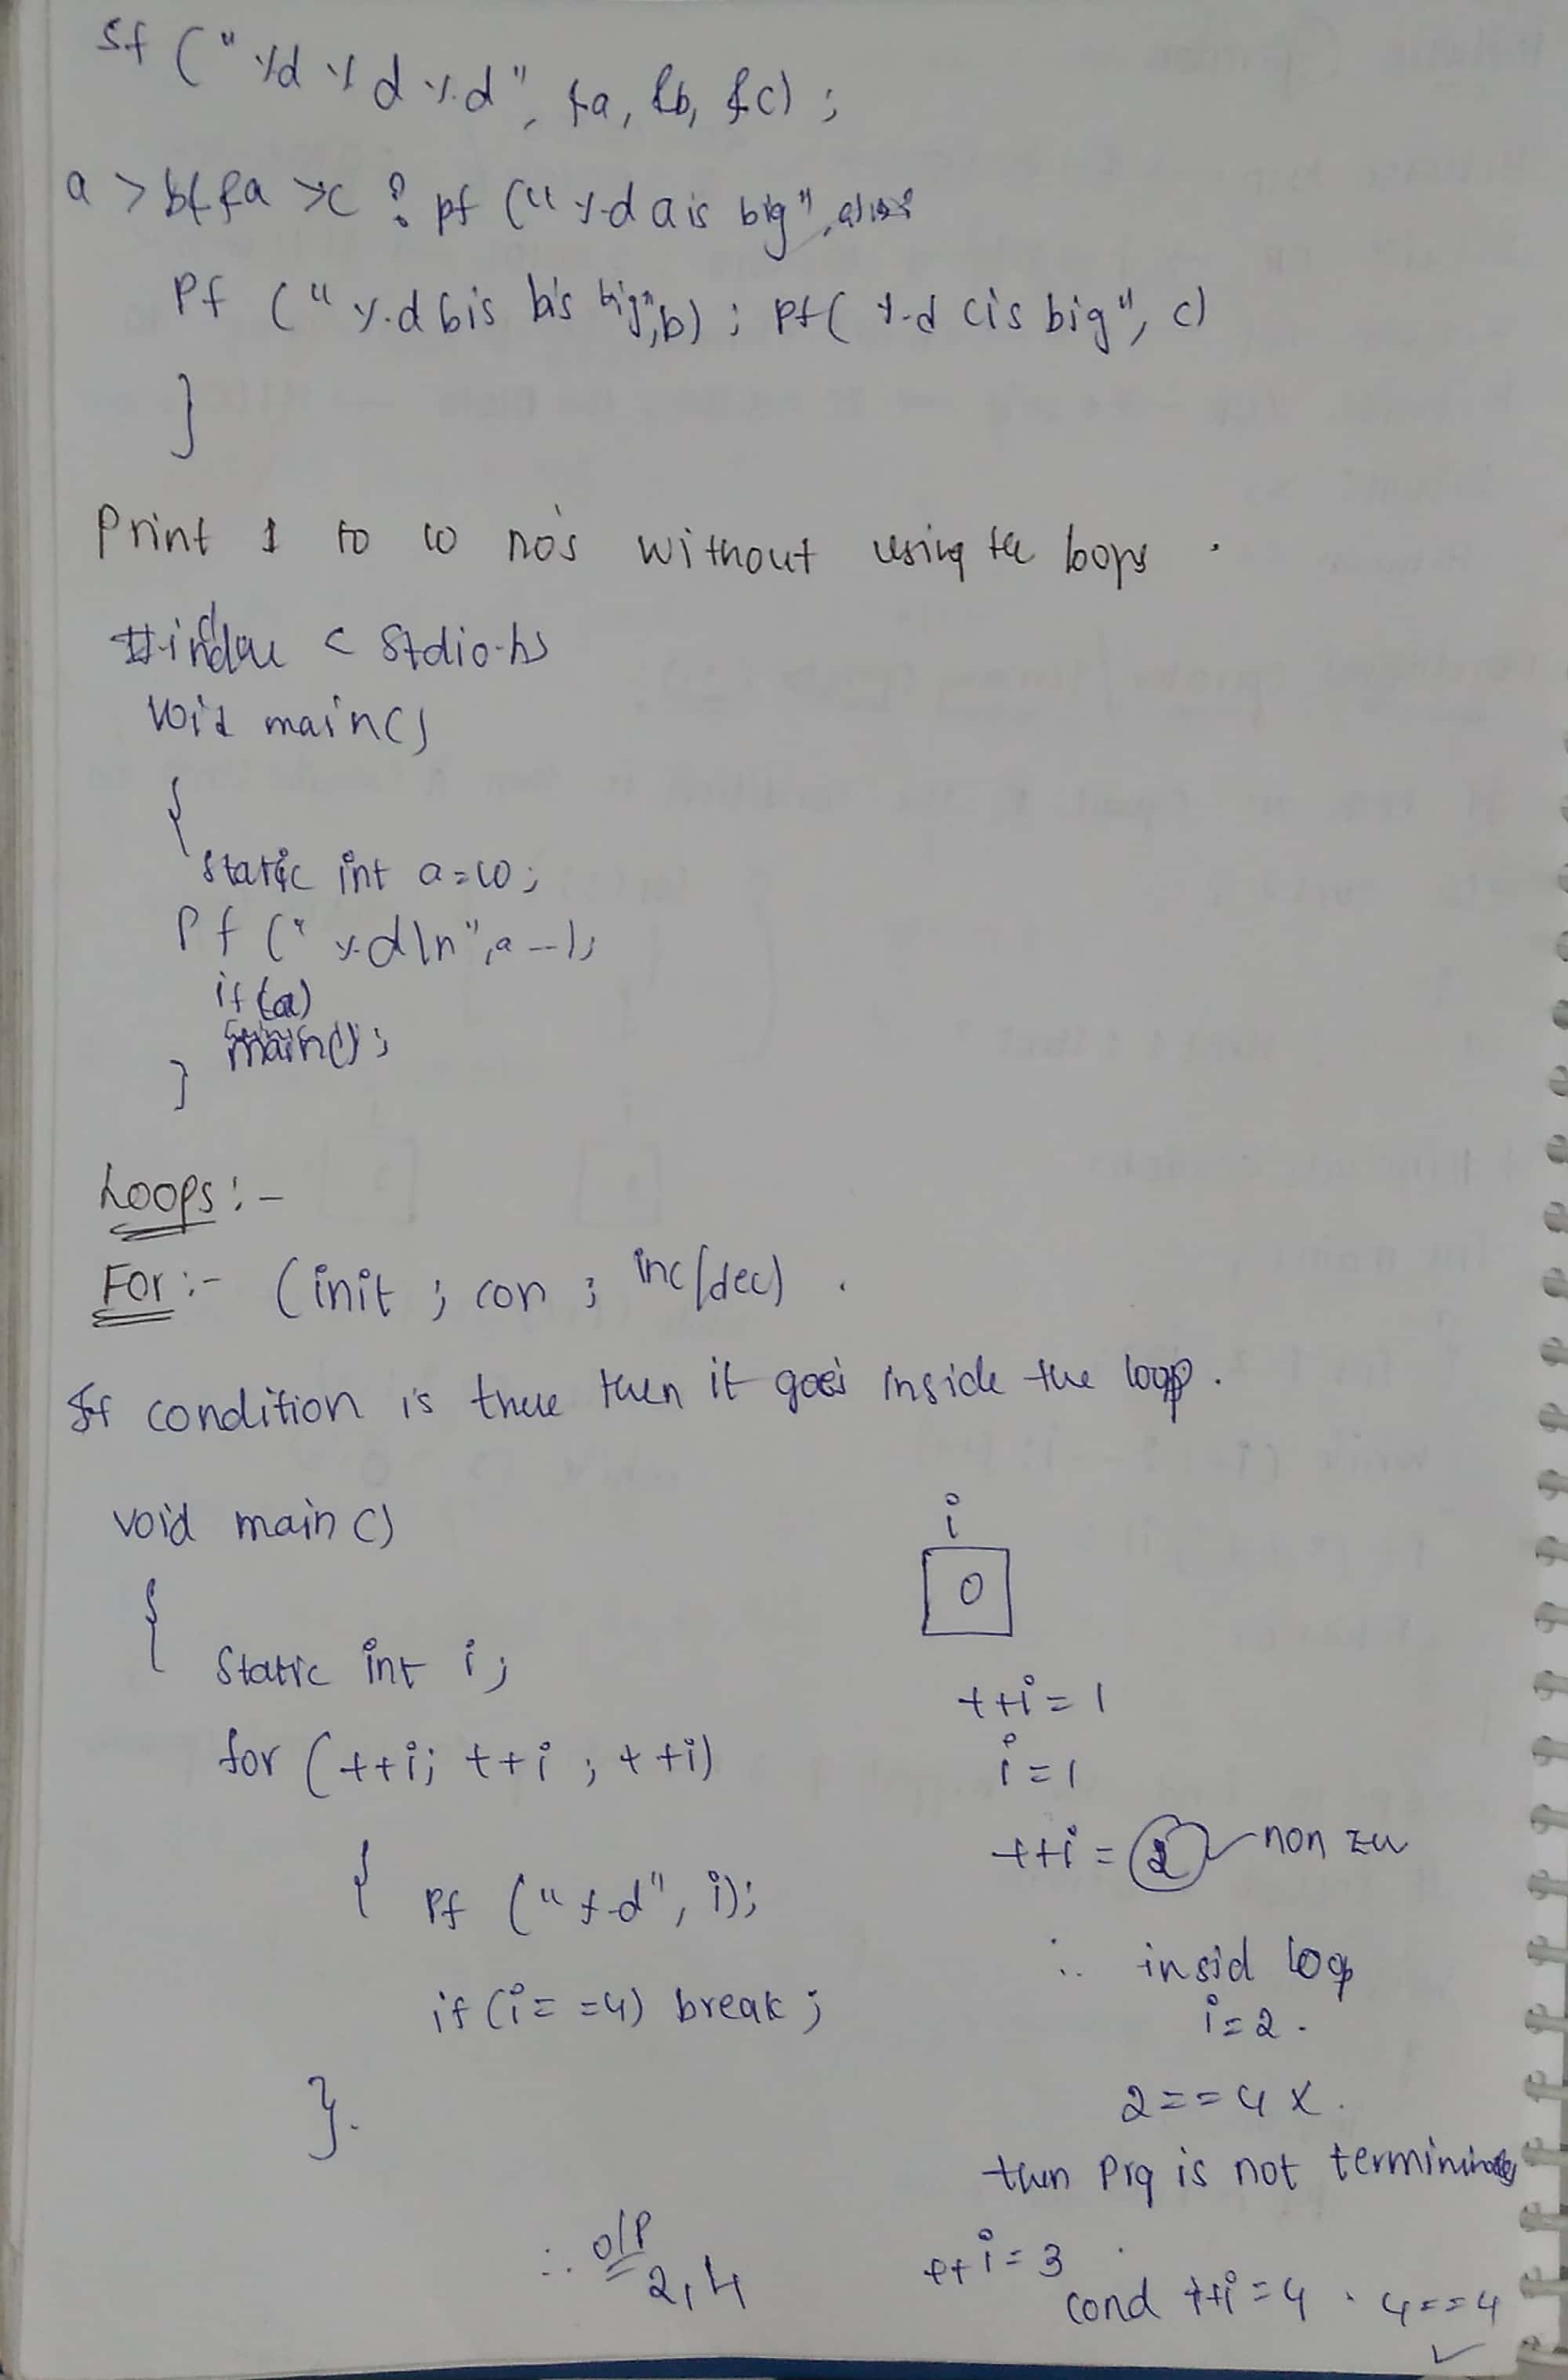 Sf ("%d %d %d", &a, &b, &c) ;
a > b&&a >c ? pf ("%d a is big",
Pf ("%d bis bis big",b) ; pf( %d cis big", c)
}
Print 1 to 10 no's without using the loops .
#include < stdio.h>
void main()
{
static int a=10;
Pf ("%d\n",a--);
if (a)
main();
}
Loops :-
For :- (init ; con ; inc/dec) .
If condition is true then it goes inside the loop .
void main ()
{
Static int i;
for (++i; ++i ; ++i)
{ Pf ("%d", i);
if (i= =4) break ;
}.
∴ o/p
2,4
i
0
++i = 1
i = 1
++i = 2 non ze
∴ insid loop
i=2 .
2 = = 4 x .
then Prg is not
++i = 3
cond ++i = 4 . 4 == 4 ✓